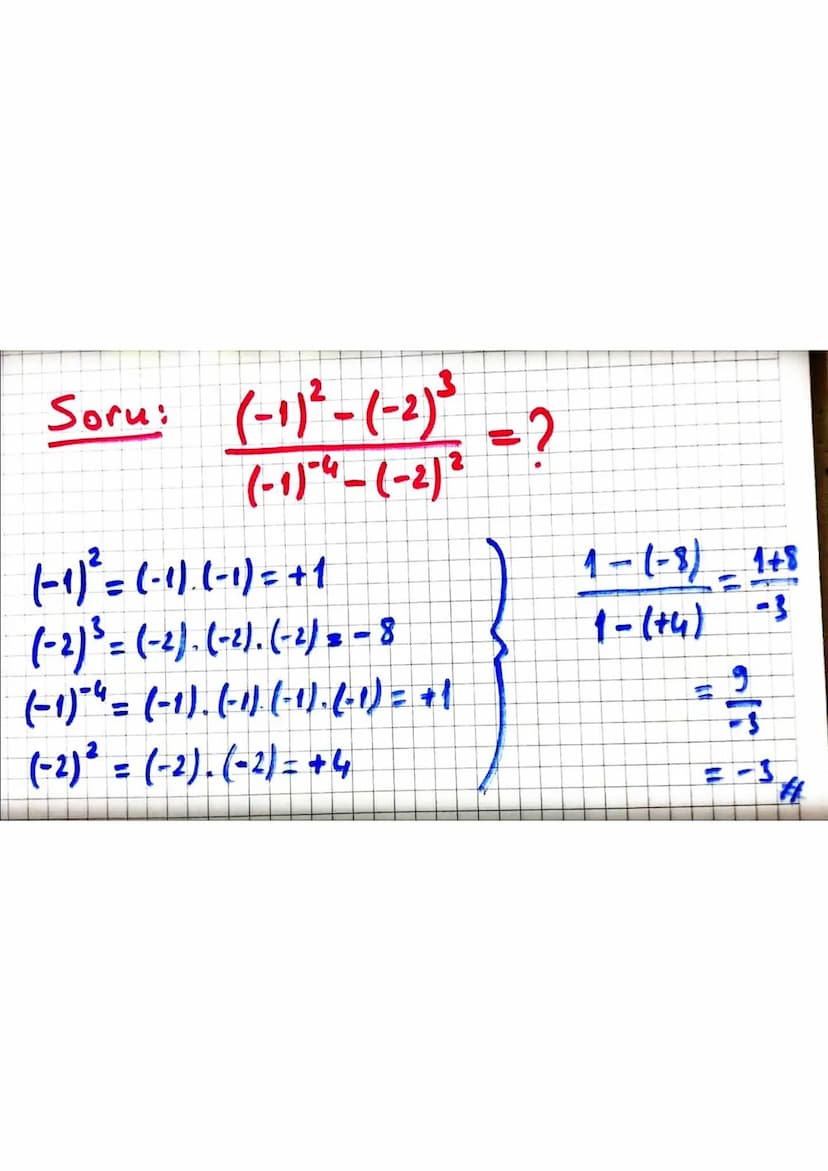 Soru: ((-1)² - (-2)³) / ((-1)⁻⁴ - (-2)²) = ?
(-1)² = (-1).(-1) = +1
(-2)³ = (-2).(-2).(-2) = -8
(-1)⁻⁴ = (-1).(-1).(-1).(-1) = +1
(-2)² = (-2).(-2) = +4
(1 - (-8)) / (1 - (+4)) = (1+8) / -3
= 9 / -3
= -3 //